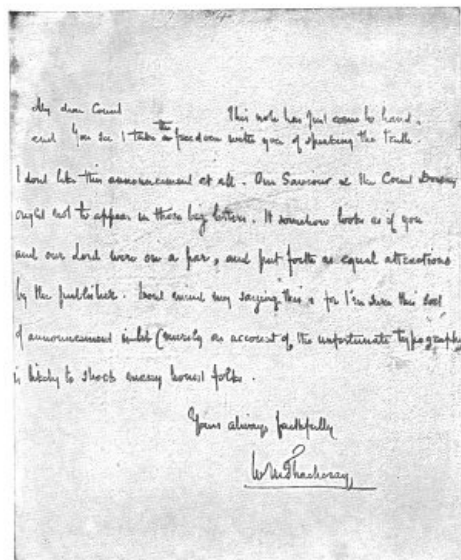 My dear Count This note has just come to hand,
and you see I take the freedom with you of speaking the truth.
I dont like this announcement at all. Our Saviour & the Count Dorsay
ought not to appear in those big letters. It somehow looks as if you
and our Lord were on a par, and put forth as equal attractions
by the publisher. Dont mind my saying this: for I'm sure this sort
of announcement (merely on account of the unfortunate typography)
is likely to shock many honest folks.
Yours always faithfully
W M Thackeray